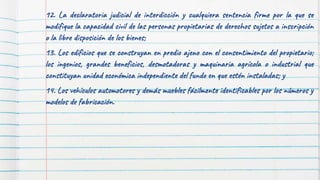 12. La declaratoria judicial de interdicción y cualquiera sentencia firme por la que se
modifique la capacidad civil de las personas propietarias de derechos sujetos a inscripción
o la libre disposición de los bienes;
13. Los edificios que se construyan en predio ajeno con el consentimiento del propietario;
los ingenios, grandes beneficios, desmotadoras y maquinaria agrícola o industrial que
constituyan unidad económica independiente del fundo en que estén instaladas; y
14. Los vehículos automotores y demás muebles fácilmente identificables por los números y
modelos de fabricación.